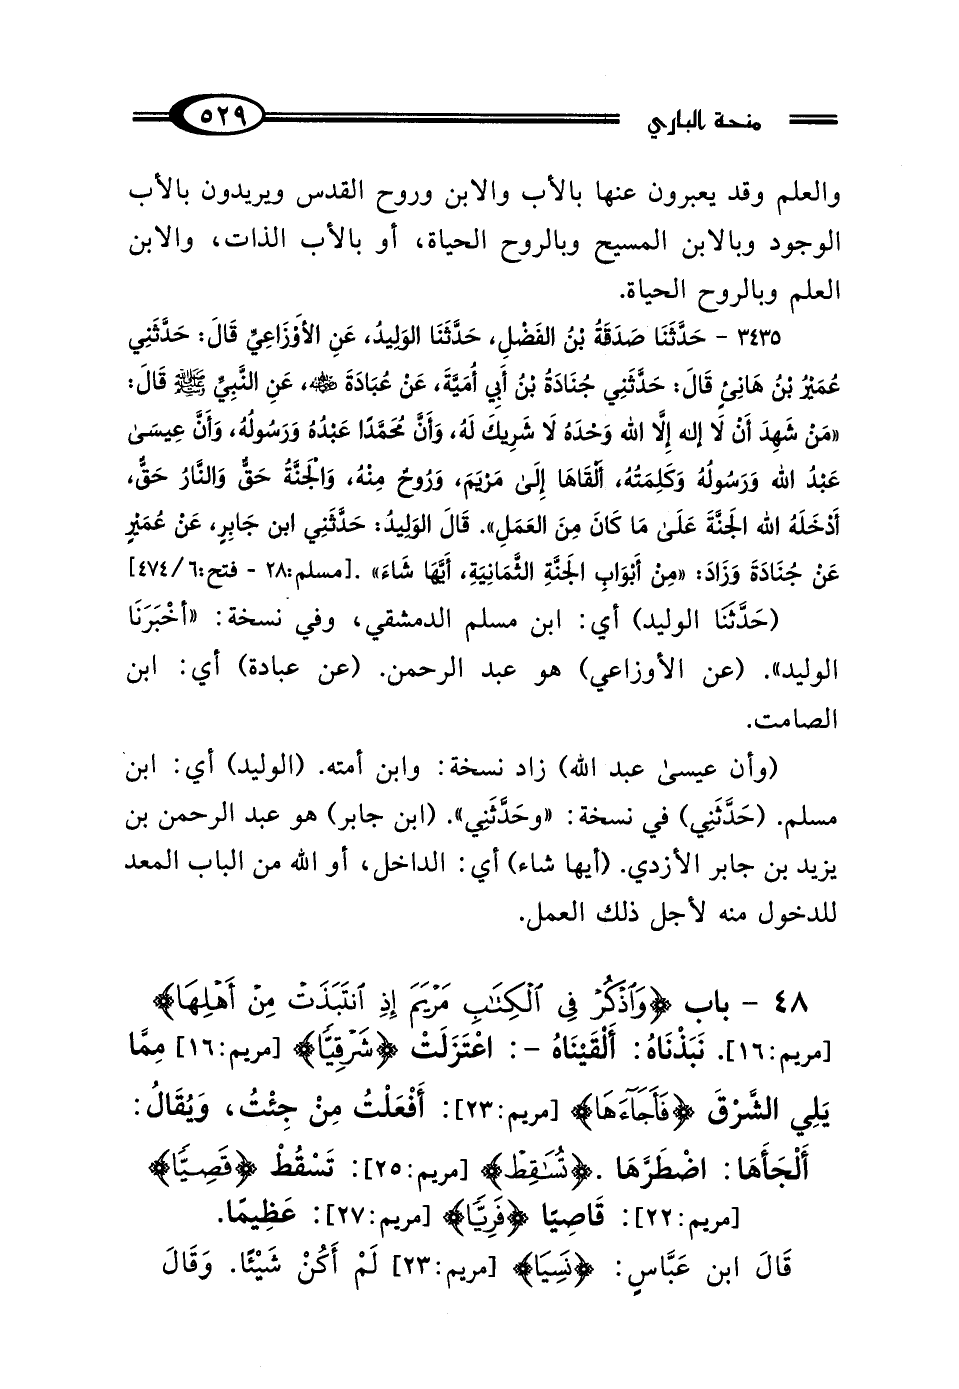 منحة الباري ٥٢٩
والعلم وقد يعبرون عنها بالأب والابن وروح القدس ويريدون بالأب
الوجود وبالابن المسيح وبالروح الحياة، أو بالأب الذات، والابن
العلم وبالروح الحياة.
٣٤٣٥ - حَدَّثَنَا صَدَقَةُ بْنُ الفَضْلِ، حَدَّثَنَا الوَلِيدُ، عَنِ الأَوْزَاعِيِّ قَالَ: حَدَّثَنِي
عُمَيْرُ بْنُ هَانِئٍ قَالَ: حَدَّثَنِي جُنَادَةُ بْنُ أَبِي أُمَيَّةَ، عَنْ عُبَادَةَ رضي الله عنه، عَنِ النَّبِيِّ ﷺ قَالَ:
«مَنْ شَهِدَ أَنْ لَا إله إِلَّا الله وَحْدَهُ لَا شَرِيكَ لَهُ، وَأَنَّ مُحَمَّدًا عَبْدُهُ وَرَسُولُهُ، وَأَنَّ عِيسَىٰ
عَبْدُ الله وَرَسُولُهُ وَكَلِمَتُهُ، أَلْقَاهَا إِلَىٰ مَرْيَمَ، وَرُوحٌ مِنْهُ، وَالْجَنَّةُ حَقٌّ وَالنَّارُ حَقٌّ،
أَدْخَلَهُ الله الجَنَّةَ عَلَىٰ مَا كَانَ مِنَ العَمَلِ». قَالَ الوَلِيدُ: حَدَّثَنِي ابن جَابِرٍ، عَنْ عُمَيْرٍ
عَنْ جُنَادَةَ وَزَادَ: «مِنْ أَبْوَابِ الجَنَّةِ الثَّمَانِيَةِ، أَيَّهَا شَاءَ». [مسلم:٢٨ - فتح:٦/ ٤٧٤]
(حَدَّثَنَا الوليد) أي: ابن مسلم الدمشقي، وفي نسخة: «أخْبَرَنَا
الوليد». (عن الأوزاعي) هو عبد الرحمن. (عن عبادة) أي: ابن
الصامت.
(وأن عيسىٰ عبد الله) زاد نسخة: وابن أمته. (الوليد) أي: ابن
مسلم. (حَدَّثَنِي) في نسخة: «وحَدَّثَنِي». (ابن جابر) هو عبد الرحمن بن
يزيد بن جابر الأزدي. (أيها شاء) أي: الداخل، أو الله من الباب المعد
للدخول منه لأجل ذلك العمل.
٤٨ - باب ﴿وَٱذْكُرْ فِي ٱلْكِتَٰبِ مَرْيَمَ إِذِ ٱنتَبَذَتْ مِنْ أَهْلِهَا﴾
[مريم:١٦]. نَبَذْنَاهُ: أَلْقَيْنَاهُ -: اعْتَزَلَتْ ﴿شَرْقِيًّا﴾ [مريم:١٦] مِمَّا
يَلِي الشَّرْقَ ﴿فَأَجَآءَهَا﴾ [مريم:٢٣]: أَفْعَلْتُ مِنْ جِئْتُ، وَيُقَالُ:
أَلْجَأَهَا: اضْطَرَّهَا .﴿تُسَٰقِطْ﴾ [مريم:٢٥]: تَسْقُطْ ﴿قَصِيًّا﴾
[مريم:٢٢]: قَاصِيًا ﴿فَرِيًّا﴾ [مريم:٢٧]: عَظِيمًا.
قَالَ ابن عَبَّاسٍ: ﴿نَسْيًا﴾ [مريم:٢٣] لَمْ أَكُنْ شَيْئًا. وَقَالَ